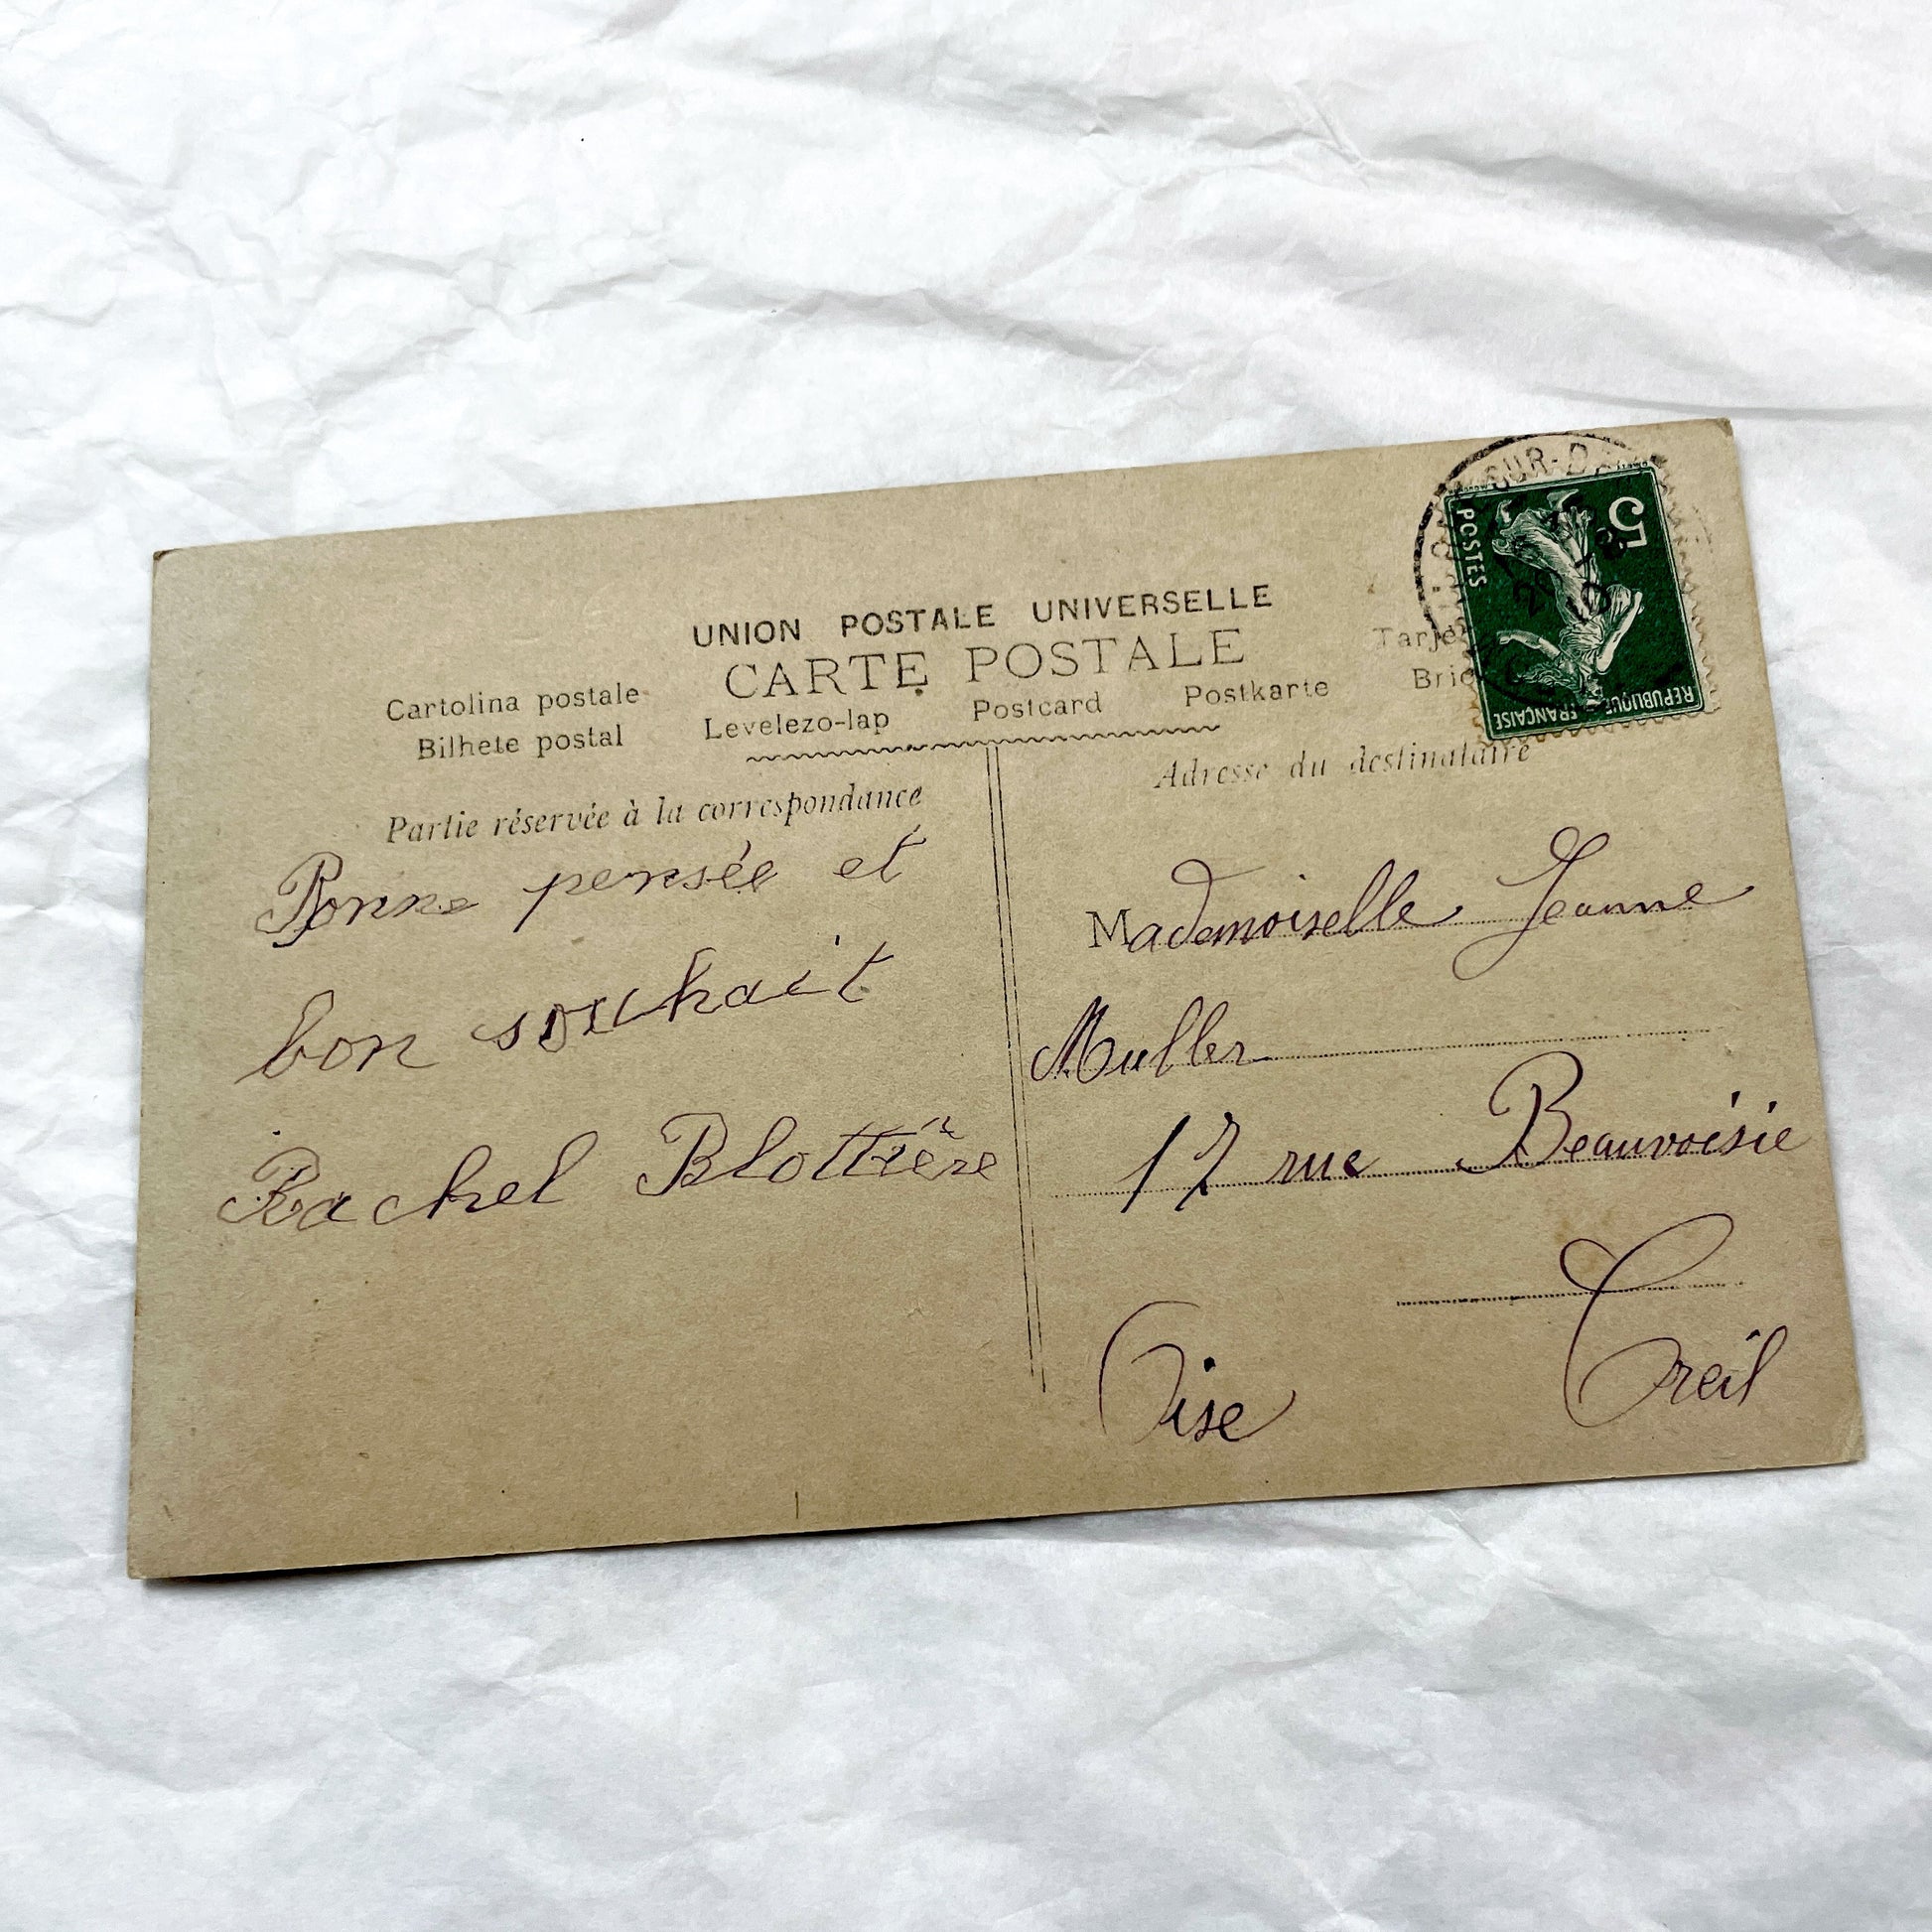 UNION POSTALE UNIVERSELLE
CARTE POSTALE
Cartolina postale Levelezo-lap Postcard Postkarte
Bilhete postal
Partie réservée à la correspondance
Bonne pensée et
bon souhait
Rachel Blottière
Adresse du destinataire
Mademoiselle Jeanne
Muller
17 rue Beauvoisie
Creil
Oise
5
POSTES
REPUBLIQUE FRANÇAISE
SUR